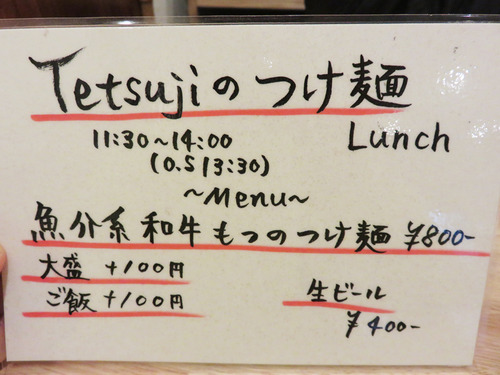 Tetsujiのつけ麺
11:30~14:00 Lunch
(O.S 13:30)
~Menu~
魚介系和牛もつのつけ麺 ¥800-
大盛 +100円
ご飯 +100円
生ビール
¥400-